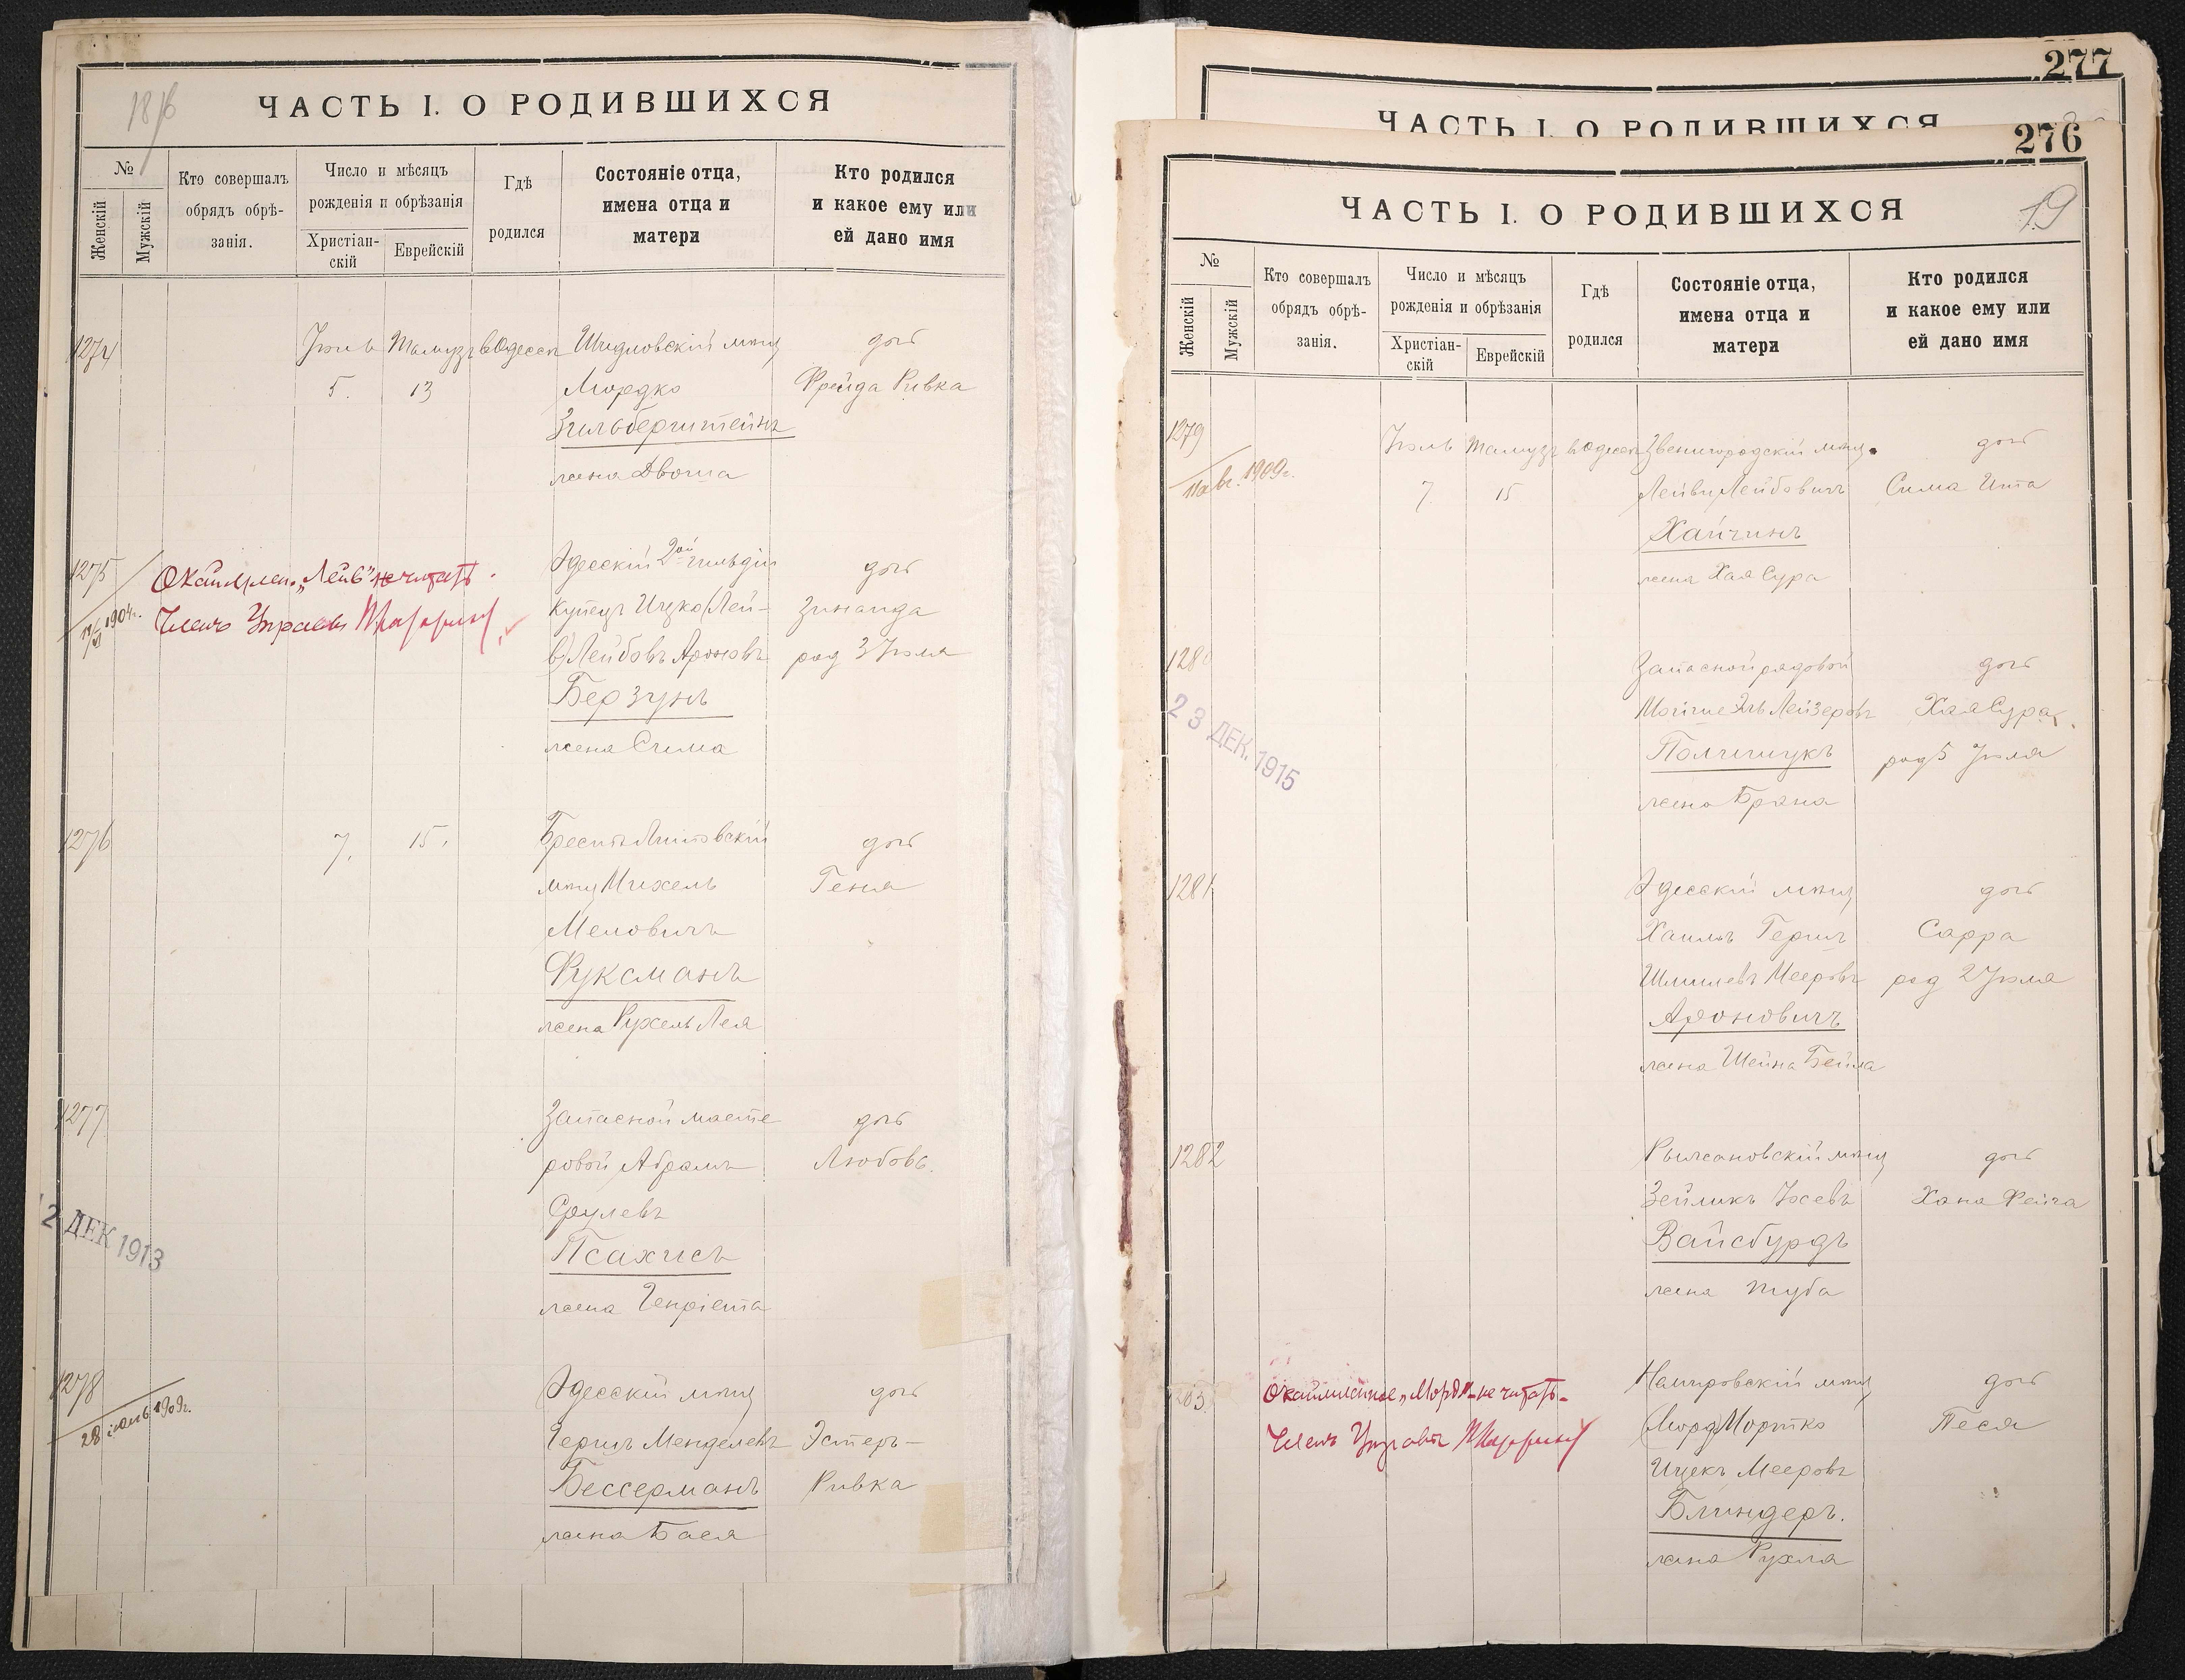 18
ЧАСТЬ I. О РОДИВШИХСЯ
№
Женскій
Мужскій
Кто совершалъ
обрядъ обрѣ-
занія.
Число и мѣсяцъ
рожденія и обрѣзанія
Христіан-
скій
Еврейскій
Гдѣ
родился
Состояніе отца,
имена отца и
матери
Кто родился
и какое ему или
ей дано имя
1274 Іюль Тамузъ в Одессѣ мѣщ дочь
5. 13 Мордко Фрейда Ривка
Зильберштейнъ
жена Двойра
1275 Одесскій 2ой гильдіи дочь
1904г.
Окаймлен. „Лейв" не читать.
Членъ Управы
купецъ Ицко (Лей- Зинаида
в) Лейбовъ Ароновъ род 3 Іюля
Берзунъ
жена Сима
1276 7. 15. Брестъ Литовскій дочь
мѣщ Михель Геня
Меновичъ
Фуксманъ
жена Рухель Лея
1277 Запасной масте дочь
ровой Абрамъ Любовь.
Срулевъ
2 ДЕК 1913
Псахисъ
жена Генріета
1278 Одесскій мѣщ дочь
28 іюль 1909г.
Гершъ Менделевъ Эстеръ-
Бессерманъ Ривка
жена Бася
277
ЧАСТЬ I. О РОДИВШИХСЯ
276
19
ЧАСТЬ I. О РОДИВШИХСЯ
№
Женскій
Мужскій
Кто совершалъ
обрядъ обрѣ-
занія.
Число и мѣсяцъ
рожденія и обрѣзанія
Христіан-
скій
Еврейскій
Гдѣ
родился
Состояніе отца,
имена отца и
матери
Кто родился
и какое ему или
ей дано имя
1279 Іюль Тамузъ в Одессѣ Звенигородскій мѣщ. дочь
11 авг. 1909г.
7. 15 Лейви Лейбовичъ Сима Ита
Хайчинъ
жена Хая Сура
1280 Запасной рядовой дочь
23 ДЕК. 1915
Мойше Эль Лейзеровъ Хая Сура,
Полищукъ род 5 Іюля
жена Брана
1281 Одесскій мѣщ дочь
Хаимъ Гершъ Сарра
Шмилевъ Мееровъ род 2 Іюля
Ароновичъ
жена Шейна Бейла
1282 Рышкановскій мѣщ дочь
Зейликъ Іосевъ Хана Фейга
Вайсбурдъ
жена Туба
Немировскій мѣщ дочь
Окаймленное „Морд"- не читать-
Членъ Управы
(Морд) Мортко Песя
Ицекъ Мееровъ
Блиндеръ.
жена Рухля